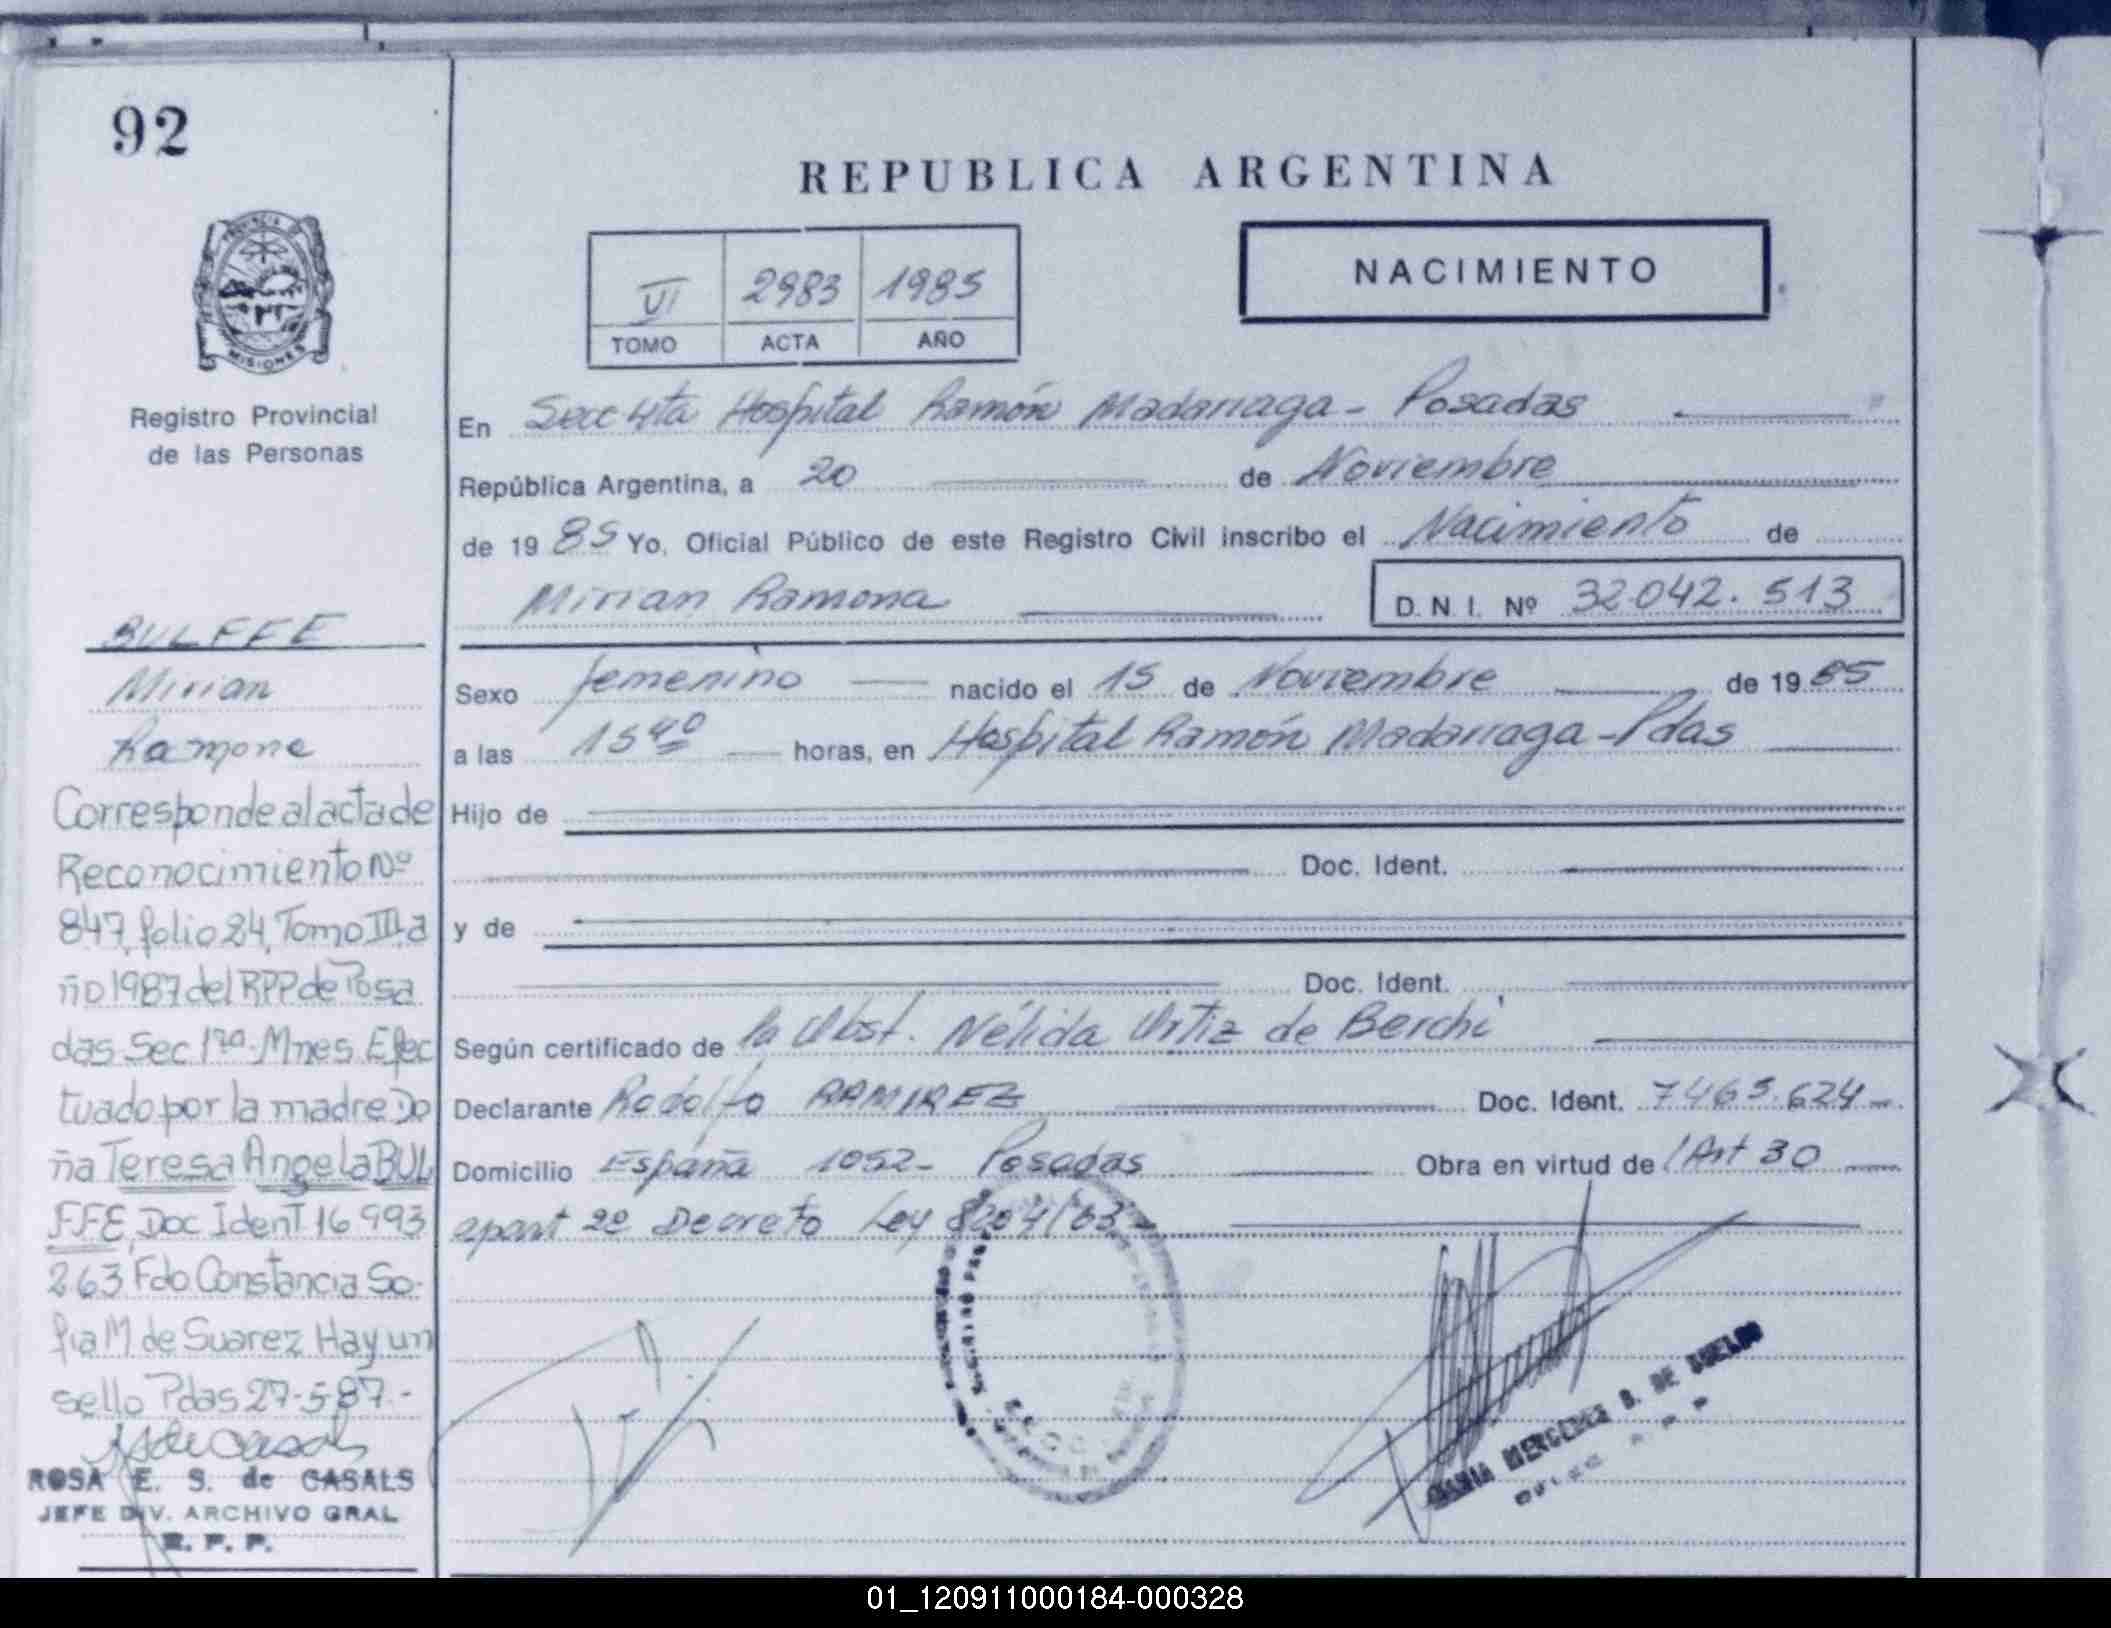 92
PROVINCIA D
MISIONES
Registro Provincial
de las Personas
BULFFE
Mirian
Ramona
Corresponde al acta de
Reconocimiento Nº
847, folio 24, Tomo III a
ño 1987 del RPP de Posa
das Sec 1ra. Mnes. Efec
tuado por la madre Do
ña Teresa Angela BUL
FFE, Doc Ident 16 993
263 Fdo Constancia So-
fia M de Suarez Hay un
sello Pdas 27-5-87.-
ROSA E. S. de CASALS
JEFE DIV. ARCHIVO GRAL
R. P. P.
REPUBLICA ARGENTINA
VI 2983 1985
TOMO ACTA AÑO
NACIMIENTO
En Secc 4ta Hospital Ramón Madariaga - Posadas
República Argentina, a 20 de Noviembre
de 19 85 Yo, Oficial Público de este Registro Civil inscribo el Nacimiento de
Mirian Ramona D. N. I. Nº 32.042.513
Sexo femenino nacido el 15 de Noviembre de 19 85
a las 15 40 horas, en Hospital Ramón Madariaga - Pdas
Hijo de
Doc. Ident.
y de
Doc. Ident.
Según certificado de la Obst. Nélida Ortiz de Berchi
Declarante Rodolfo RAMIREZ Doc. Ident. 7.463.624 -
Domicilio España 1052 - Posadas Obra en virtud de / Art 30
apart 2º Decreto Ley 8204/63 -
MERCEDES B. DE
01_120911000184-000328